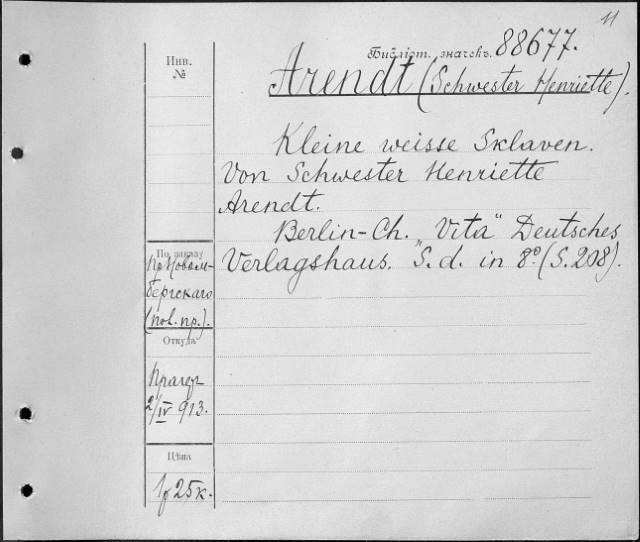 11
Библіот. значекъ. 88677.
Инв.
№
Arendt (Schwester Henriette).
Kleine weisse Sklaven.
Von Schwester Henriette
Arendt.
Berlin-Ch. „Vita" Deutsches
Verlagshaus. S. d. in 8º. (S. 208).
По заказу
бергскаго
(пов. пр.).
Откуда
Прагер
2/IV 913.
Цѣна
1 р 25 к.